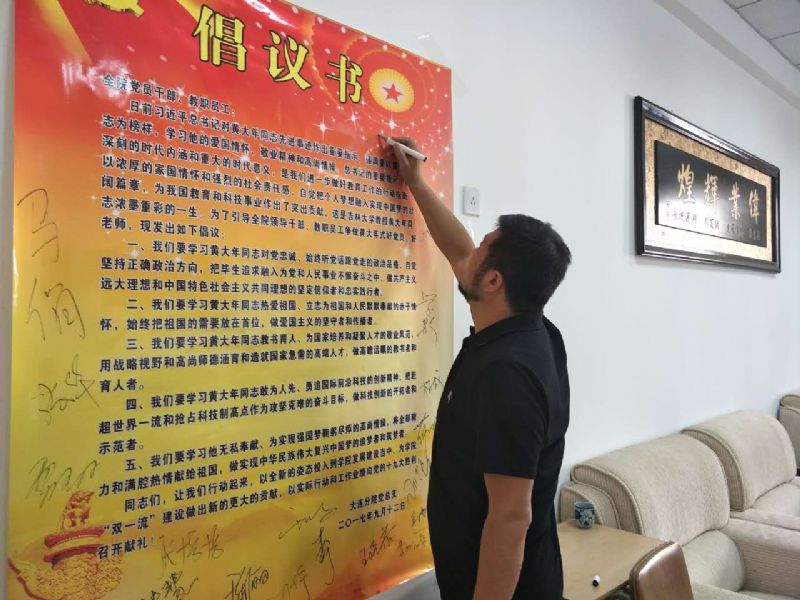 倡议书
全院党员干部、教职员工：
日前习近平总书记对黄大年同志先进事迹作出重要指示，强调要以黄
志为榜样，学习他的爱国情怀、敬业精神和高尚情操。总书记的重要指示
深刻的时代内涵和重大的时代意义，是我们进一步做好教育工作的行动指南
以浓厚的家国情怀和强烈的社会责任感，自觉把个人梦想融入实现中国梦的壮
阔篇章，为我国教育和科技事业作出了突出贡献，这是吉林大学教授黄大年同
志浓墨重彩的一生。为了引导全院领导干部、教职员工争做黄大年式好党员、好
老师，现发出如下倡议：
一、我们要学习黄大年同志对党忠诚、始终听党话跟党走的政治品格，自觉
坚持正确政治方向，把毕生追求融入为党和人民事业不懈奋斗之中，做共产主义
远大理想和中国特色社会主义共同理想的坚定信仰者和忠实践行者。
二、我们要学习黄大年同志热爱祖国、立志为祖国和人民默默奉献的赤子情
怀，始终把祖国的需要放在首位，做爱国主义的坚守者和传播者。
三、我们要学习黄大年同志教书育人、为国家培养和凝聚人才的敬业风范，
用战略视野和高尚师德涵育和造就国家急需的高端人才，做高瞻远瞩的教书者和
育人者。
四、我们要学习黄大年同志敢为人先、勇追国际前沿科技的创新精神，把赶
超世界一流和抢占科技制高点作为攻坚克难的奋斗目标，做科技创新的开拓者和
示范者。
五、我们要学习他无私奉献、为实现强国梦鞠躬尽瘁的高尚情操，将全部精
力和满腔热情献给祖国，做实现中华民族伟大复兴中国梦的追梦者和筑梦者。
同志们，让我们行动起来，以全新的姿态投入到学院发展建设当中，为学院
“双一流”建设做出新的更大的贡献，以实际行动和工作业绩向党的十九大胜利
召开献礼！
大连分院党总支
二〇一七年九月十二日
煌辉业伟